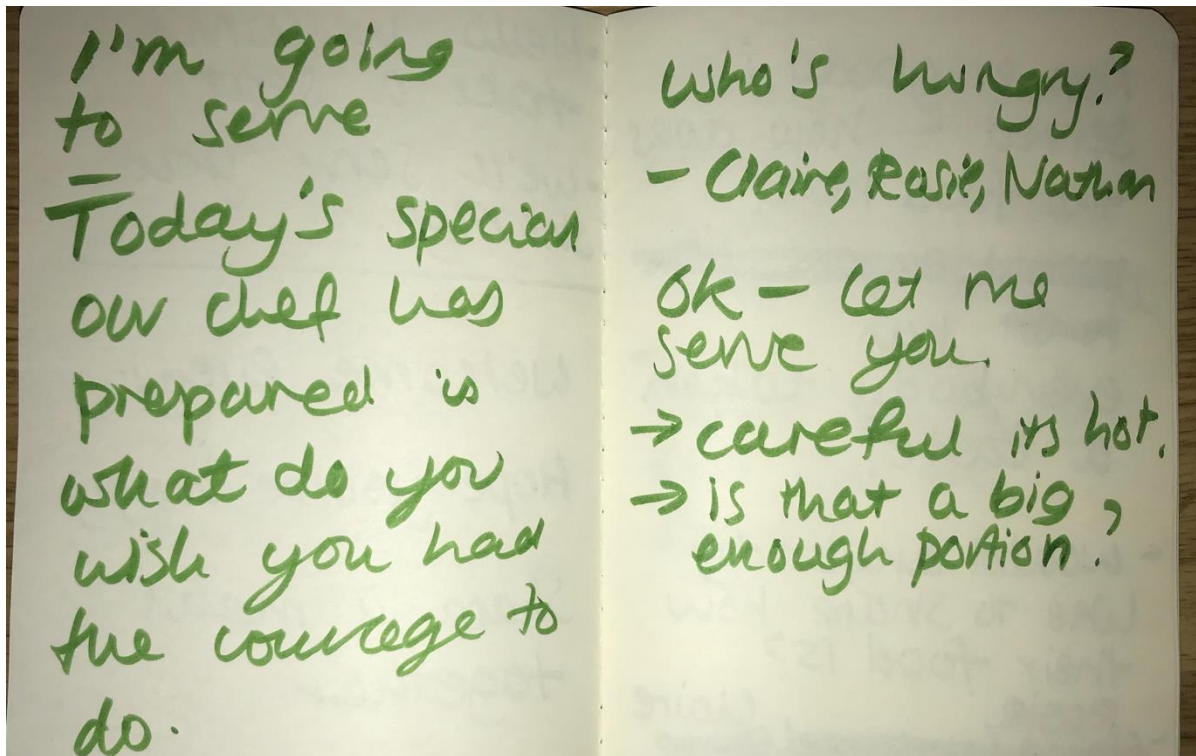 I'm going
to serve
—
Today's special
our chef has
prepared is
what do you
wish you had
the courage to
do.
who's hungry?
- Claire, Rosie, Nathan
OK - let me
serve you.
→ careful its hot.
→ is that a big
enough portion?